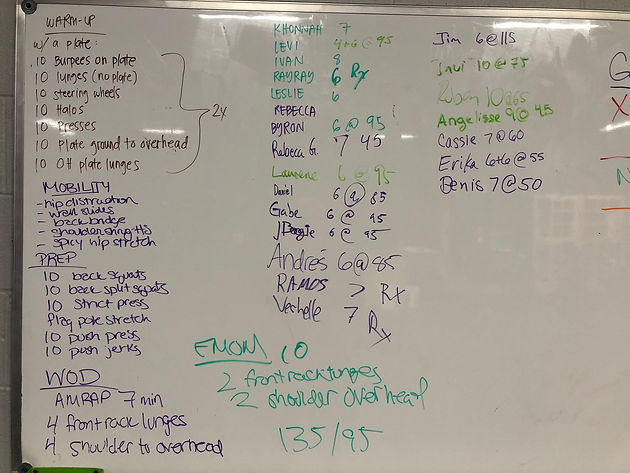 WARM-UP
w/ a plate:
10 Burpees on plate
10 lunges (no plate)
10 steering wheels
10 Halos
10 Presses
10 Plate ground to overhead
10 OH plate lunges
2x
MOBILITY
- hip distraction
- wall slides
- back bridge
- spicy hip stretch
PREP
10 back squats
10 back split squats
10 strict press
flag pole stretch
10 push press
10 push jerks
WOD
AMRAP 7 min
4 front rack lunges
4 shoulder to overhead
KHONNAH 7
LEVI 4+6 @ 95
IVAN 8
RAYRAY 6 Rx
LESLIE 6
REBECCA
BYRON 6 @ 95
Rebecca G. 7 45
Laurene 6 @ 95
Daniel 6 @ 65
Gabe 6 @ 95
6 @ 95
Andres 6@85
RAMOS 7 RX
Vachelle 7 Rx
EMOM 10
2 front rack lunges
2 shoulder overhead
135/95
Jim 6@115
Javi 10@75
10@65
Angelisse 9@45
Cassie 7@60
Erika 6+6@55
Denis 7@50